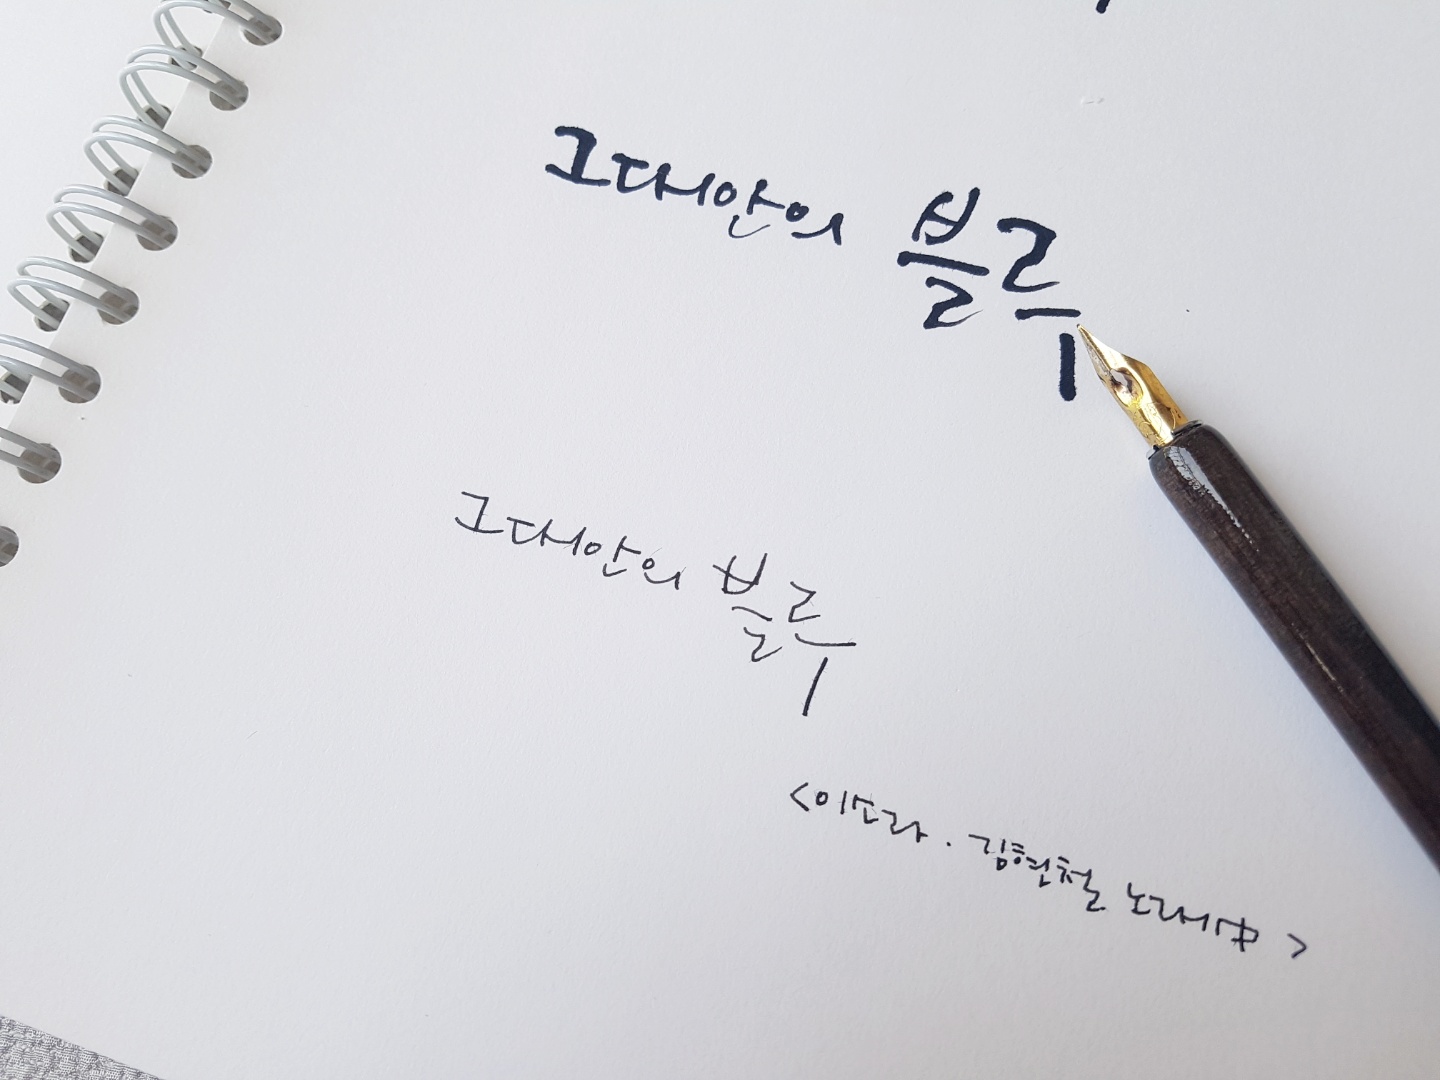 그대안의 블루
그대안의 블루
<이소라 · 김현철 노래中>